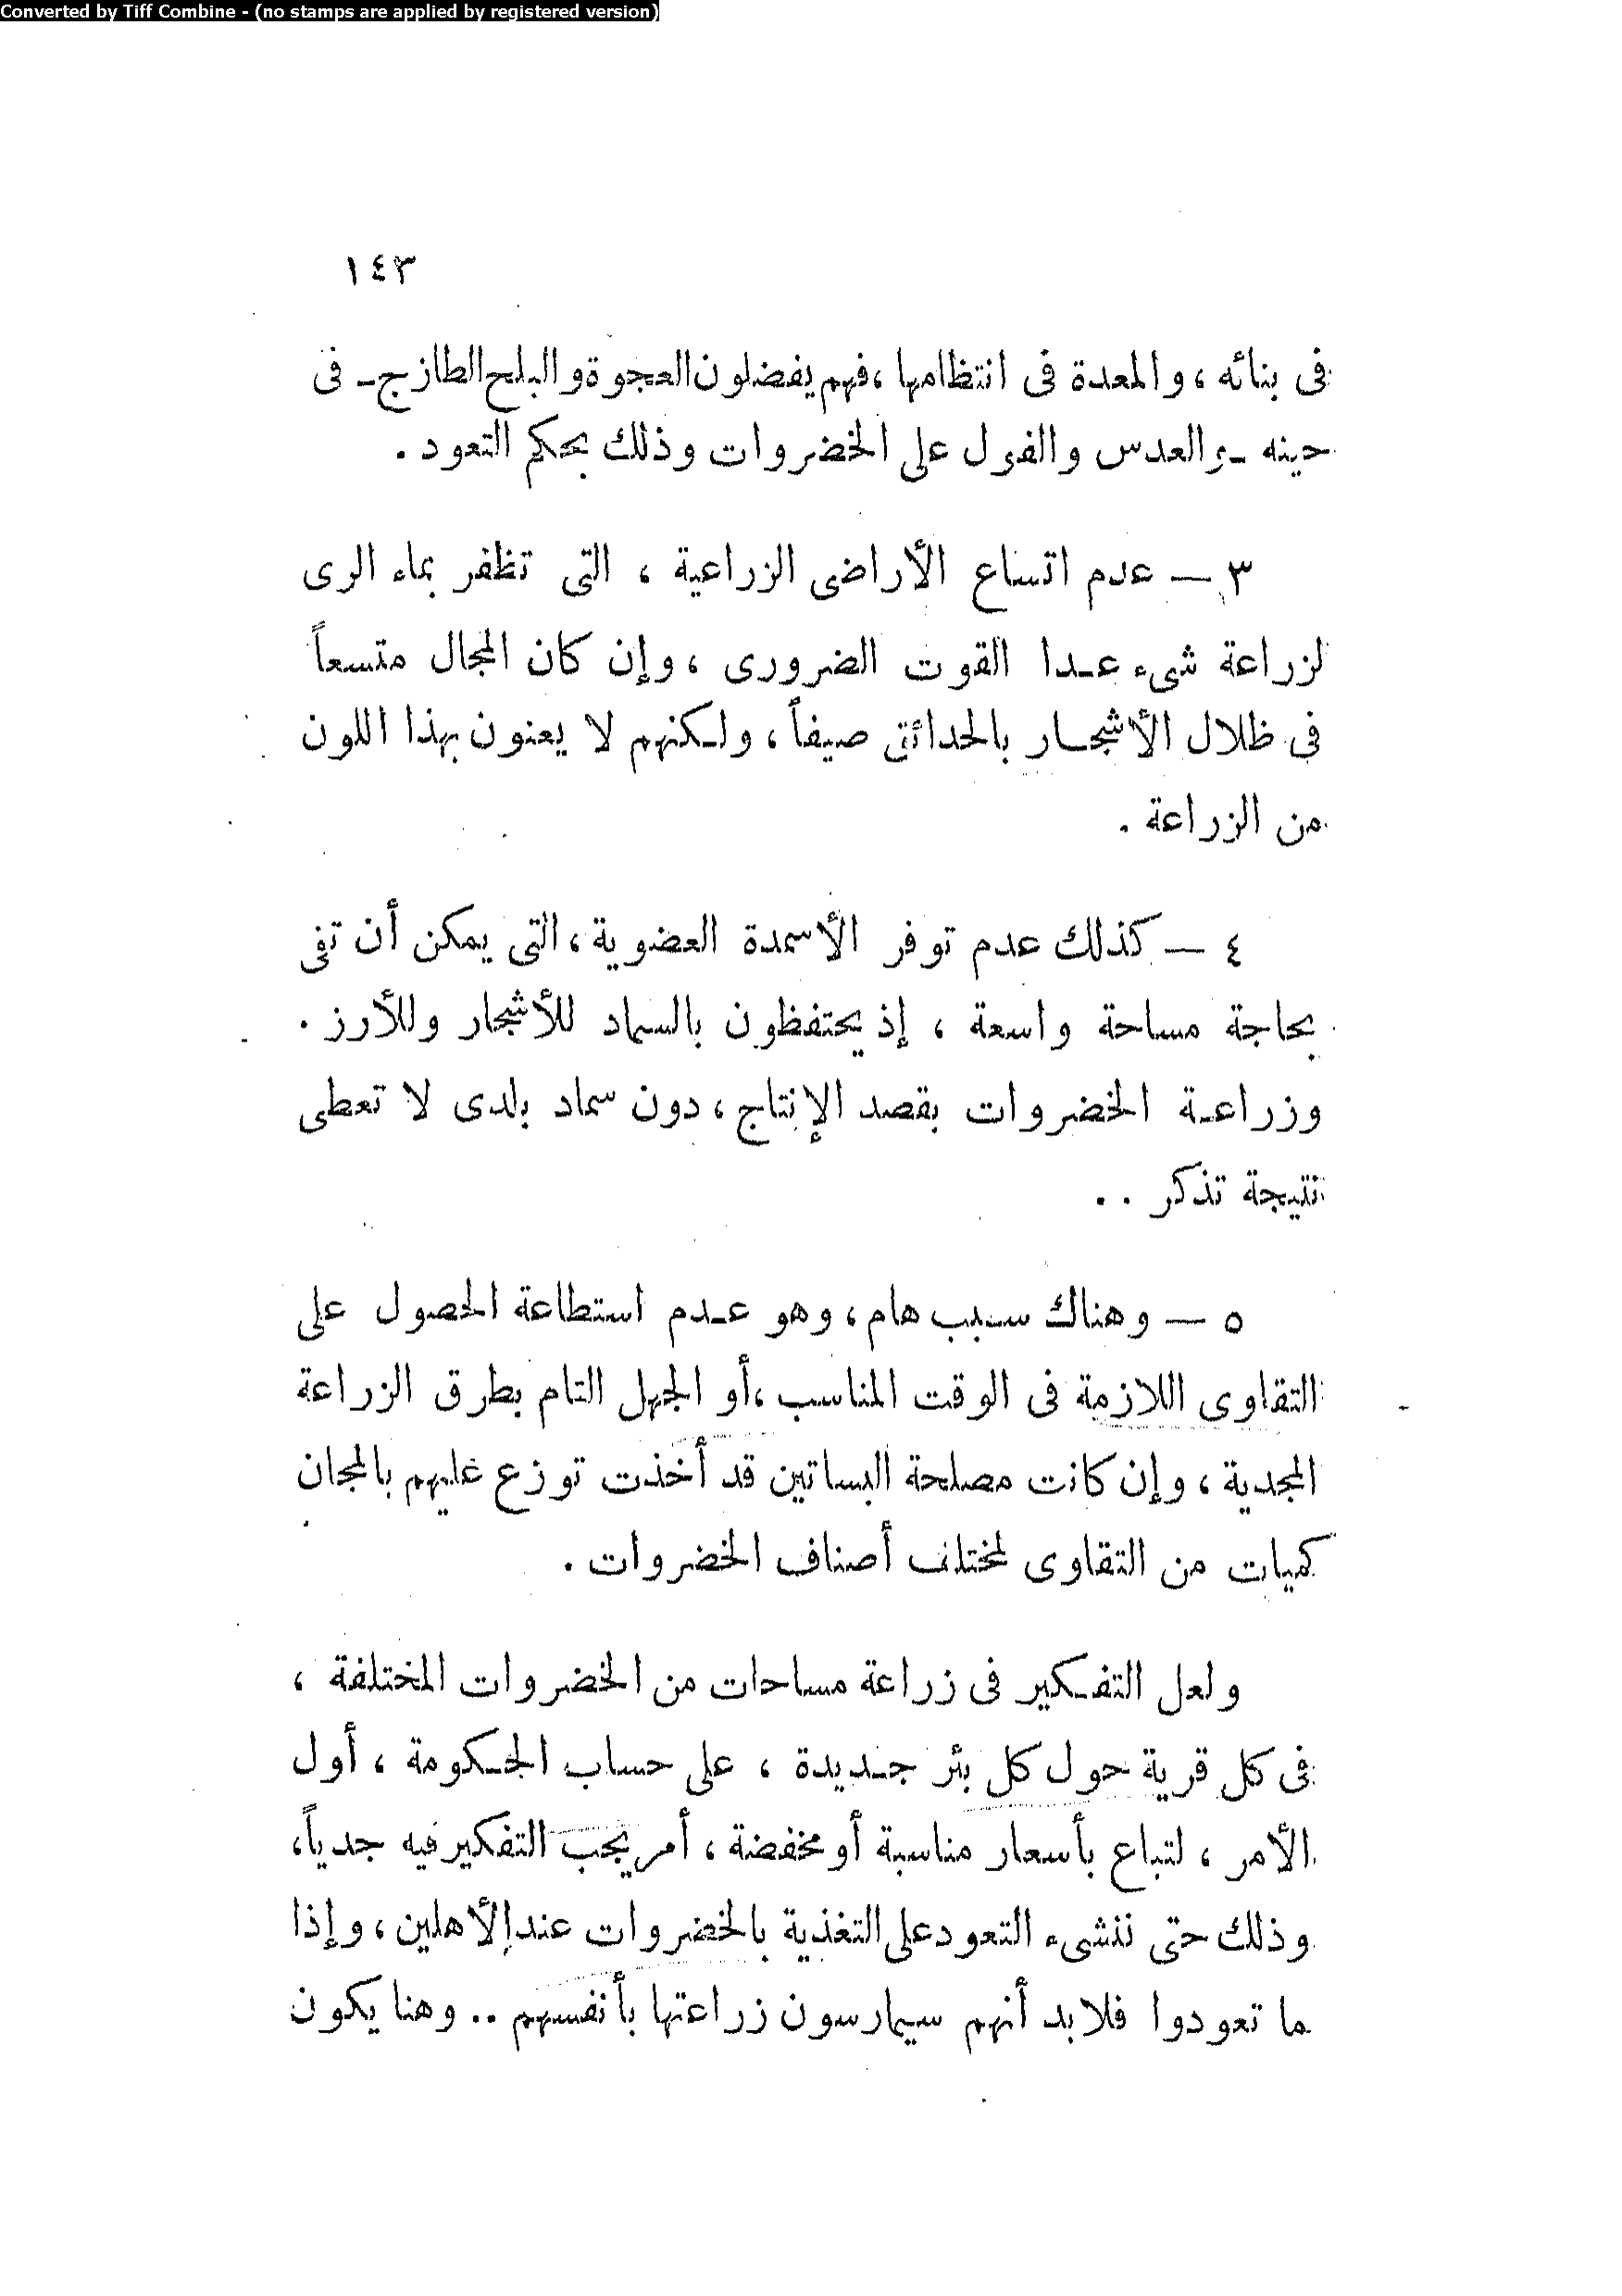 Converted by Tiff Combine - (no stamps are applied by registered version)
١٤٣
فى بنائه ، والمعدة فى انتظامها ، فهم يفضلون العجوة والبلح الطازج ـ فى
حينه ـ والعدس والفول على الخضروات وذلك بحكم التعود .
٣ — عدم اتساع الأراضى الزراعية ، التى تظفر بماء الرى
لزراعة شىء عـدا القوت الضرورى ، وإن كان المجال متسعاً
فى ظلال الأشجـار بالحدائق صيفاً ، ولـكنهم لا يعنون بهذا اللون
من الزراعة .
٤ — كذلك عدم توفر الأسمدة العضوية ، التى يمكن أن تفى
بحاجة مساحة واسعة ، إذ يحتفظون بالسماد للأشجار وللأرز .
وزراعـة الخضروات بقصد الإنتاج ، دون سماد بلدى لا تعطى
نتيجة تذكر . .
٥ — وهناك سبب هام ، وهو عـدم استطاعة الحصول على
التقاوى اللازمة فى الوقت المناسب ، أو الجهل التام بطرق الزراعة
المجدية ، وإن كانت مصلحة البساتين قد أخذت توزع عليهم بالمجان
كميات من التقاوى لمختلف أصناف الخضروات .
ولعل التفـكير فى زراعة مساحات من الخضروات المختلفة ،
فى كل قرية حول كل بئر جـديدة ، على حساب الحـكومة ، أول
الأمر ، لتباع بأسعار مناسبة أو مخفضة ، أمر يجب التفكير فيه جدياً ،
وذلك حتى ننشىء التعود على التغذية بالخضروات عند الأهلين ، وإذا
ما تعودوا فلا بد أنهم سيمارسون زراعتها بأنفسهم .. وهنا يكون